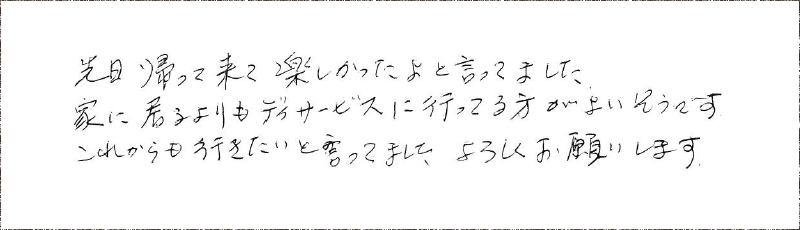 先日帰って来て楽しかったよと言ってました、
家に居るよりもデイサービスに行ってる方がよいそうです
これからも行きたいと言ってました、よろしくお願いします